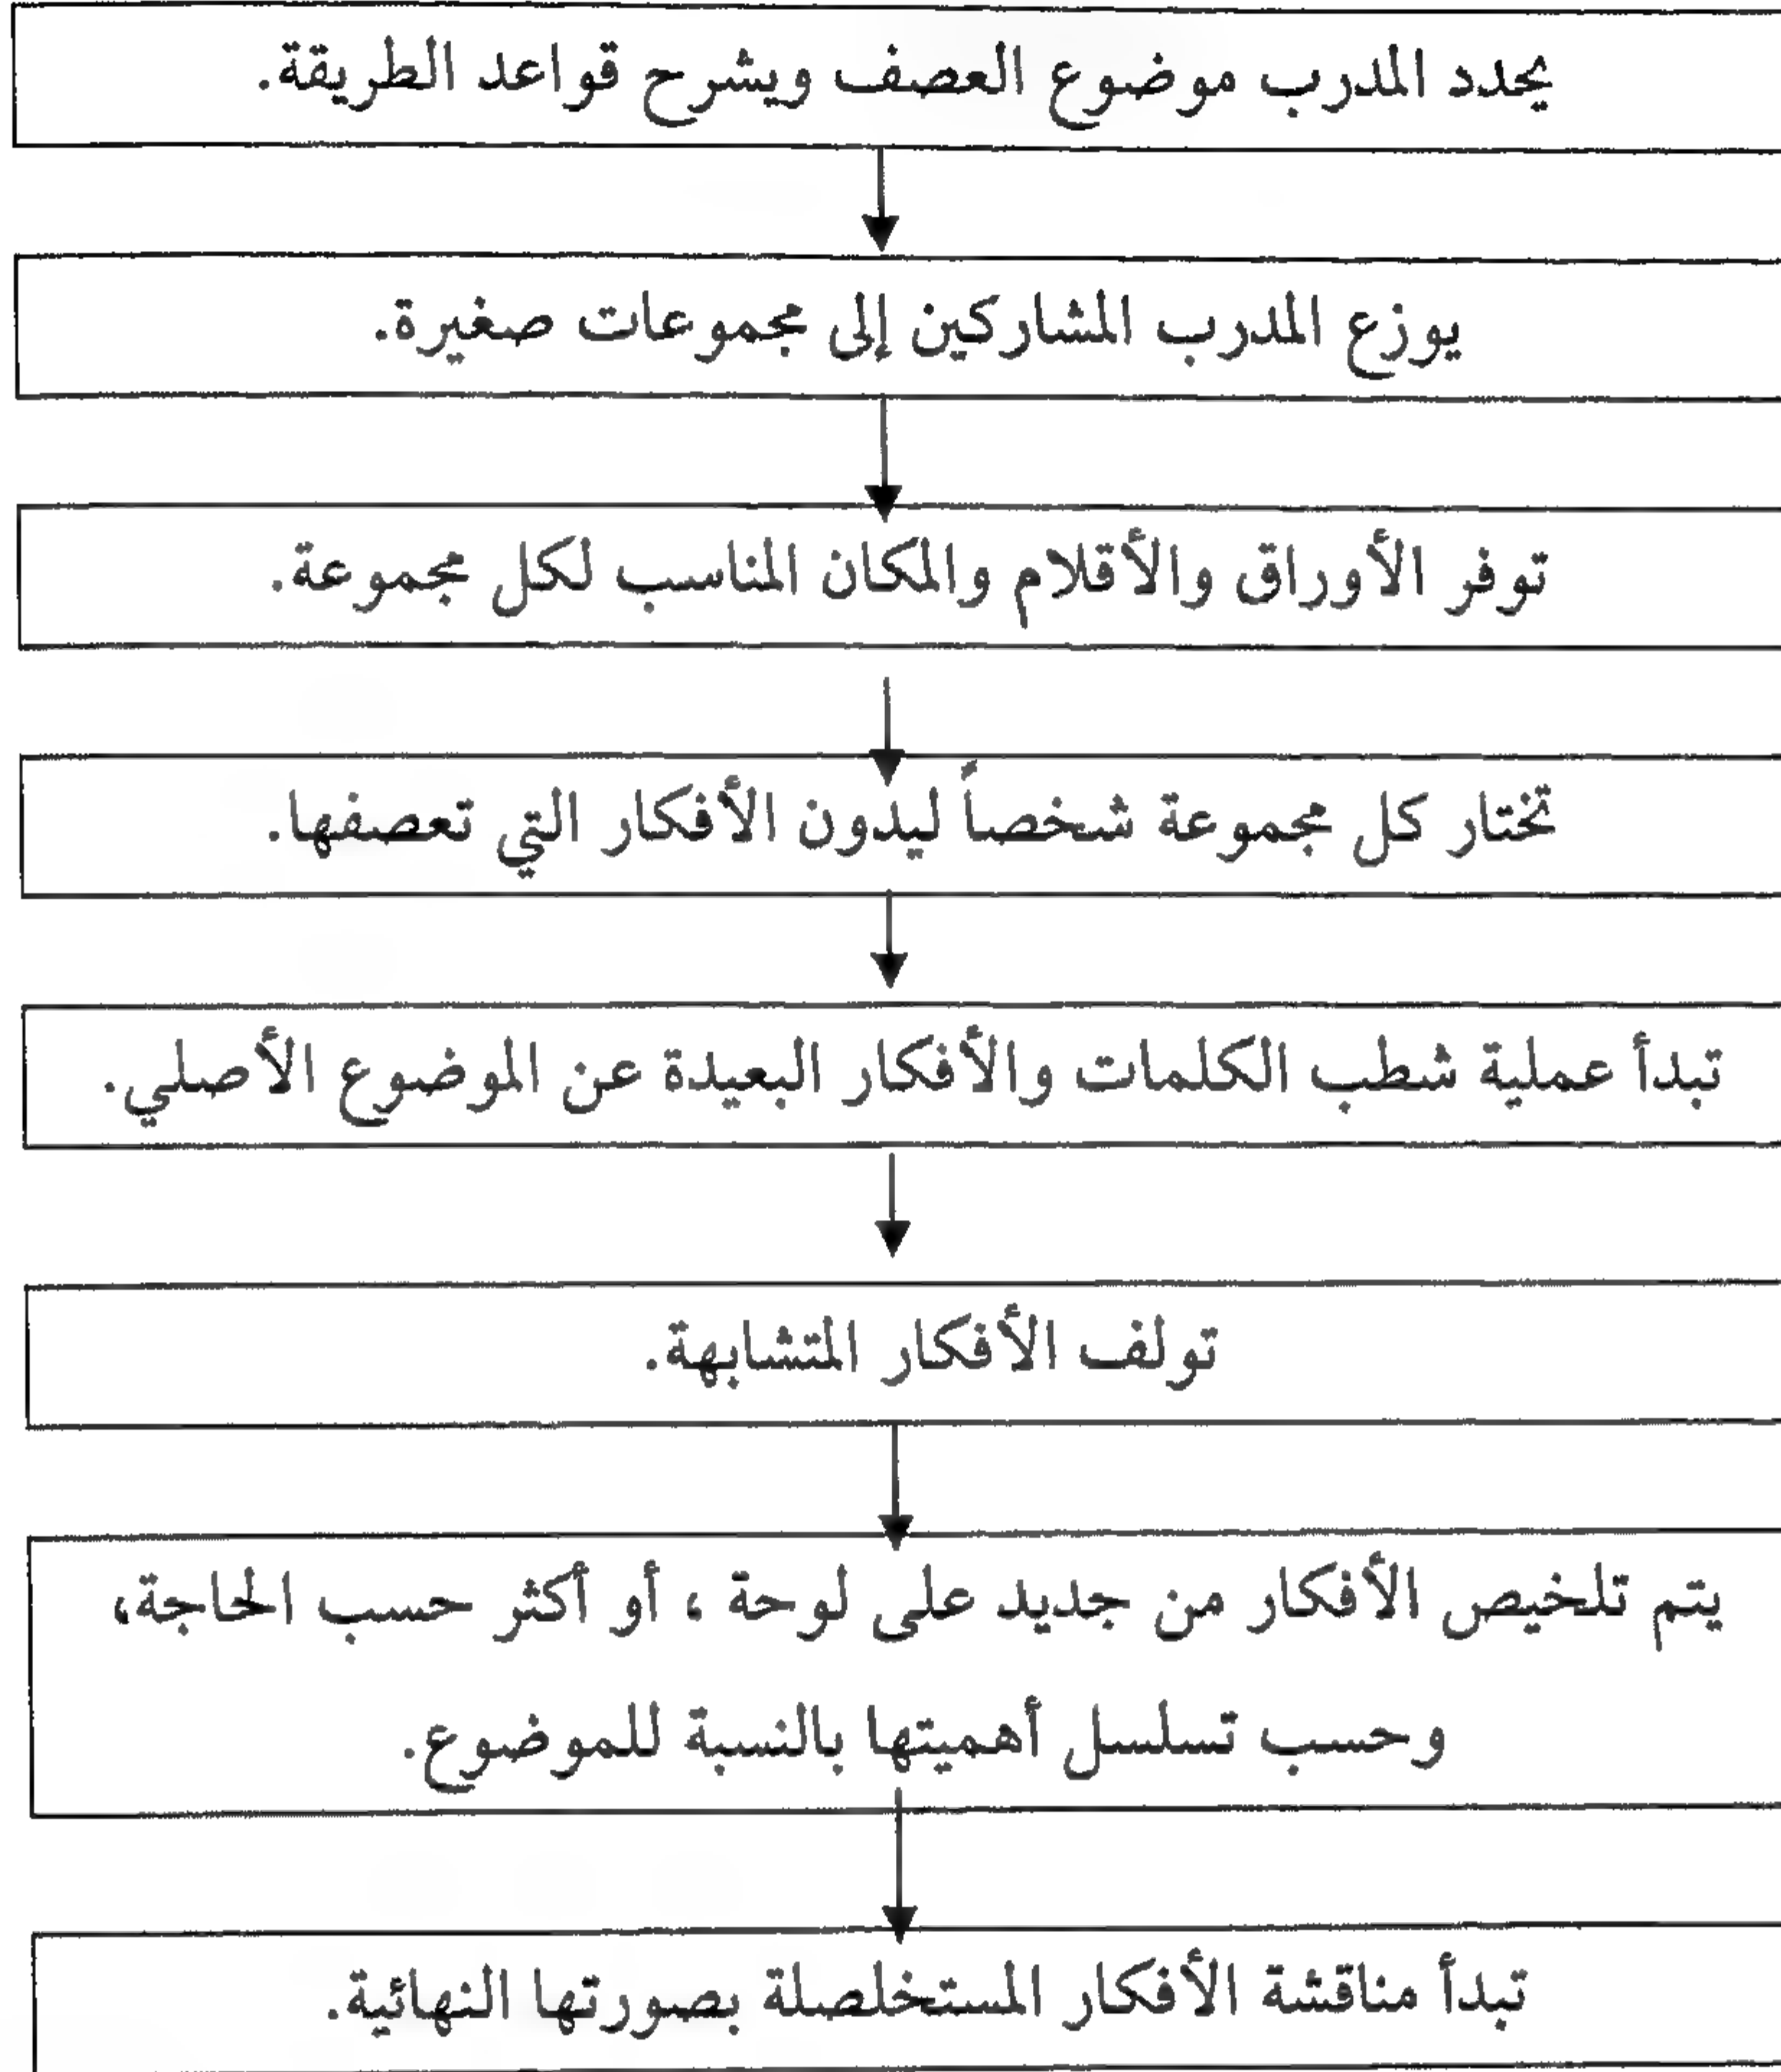 يحدد المدرب موضوع العصف ويشرح قواعد الطريقة.
يوزع المدرب المشاركين إلى مجموعات صغيرة.
توفر الأوراق والأقلام والمكان المناسب لكل مجموعة.
تختار كل مجموعة شخصاً ليدون الأفكار التي تعصفها.
تبدأ عملية شطب الكلمات والأفكار البعيدة عن الموضوع الأصلي.
تولف الأفكار المتشابهة.
يتم تلخيص الأفكار من جديد على لوحة ، أو أكثر حسب الحاجة،
وحسب تسلسل أهميتها بالنسبة للموضوع.
تبدأ مناقشة الأفكار المستخلصلة بصورتها النهائية.